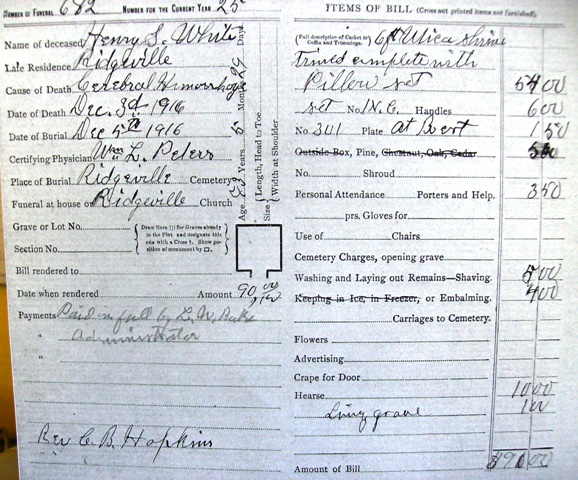 NUMBER OF FUNERAL 682 NUMBER FOR THE CURRENT YEAR 25
Name of deceased Henry S. White
Late Residence Ridgeville
Cause of Death Cerebral Hemorrhage
Date of Death Dec. 3d 1916
Date of Burial Dec 5th 1916
Certifying Physician Wm L. Peters
Place of Burial Ridgeville Cemetery
Funeral at house or Ridgeville Church
Grave or Lot No.
Section No.
Draw lines for Graves already in the Plot and designate this one with a Cross †. Show position of monument by □.
Bill rendered to
Date when rendered Amount 90.00
Payments Paid in full by L. W.
" Administrator
"
Rev C. B. Hopkins
Age Years 5 Months 29 Days
Size Length, Head to Toe
Width at Shoulder
ITEMS OF BILL (Cross out printed items not furnished).
(Full description of Casket or Coffin and Trimmings. 6ft Utica Shrine
trimed complete with
Pillow set 54 00
set No. Handles 6 00
No. 301 Plate At Rest 1 50
Outside Box, Pine, Chestnut, Oak, Cedar 5 00
No. Shroud
Personal Attendance Porters and Help. 3 50
prs. Gloves for
Use of Chairs
Cemetery Charges, opening grave
Washing and Laying out Remains—Shaving. 5 00
Keeping in Ice, in Freezer, or Embalming. 4 00
Carriages to Cemetery.
Flowers
Advertising
Crape for Door
Hearse 10 00
Lining grave 1 00
Amount of Bill $90 00